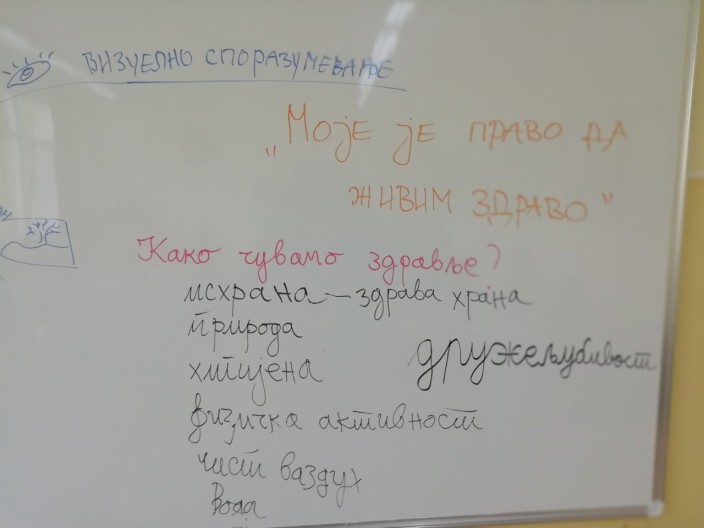 ВИЗУЕЛНО СПОРАЗУМЕВАЊЕ
„МОЈЕ ЈЕ ПРАВО ДА
ЖИВИМ ЗДРАВО”
Како чувамо здравље?
исхрана – здрава храна
природа
хигијена
дружељубивост
физичка активност
чист ваздух
вода